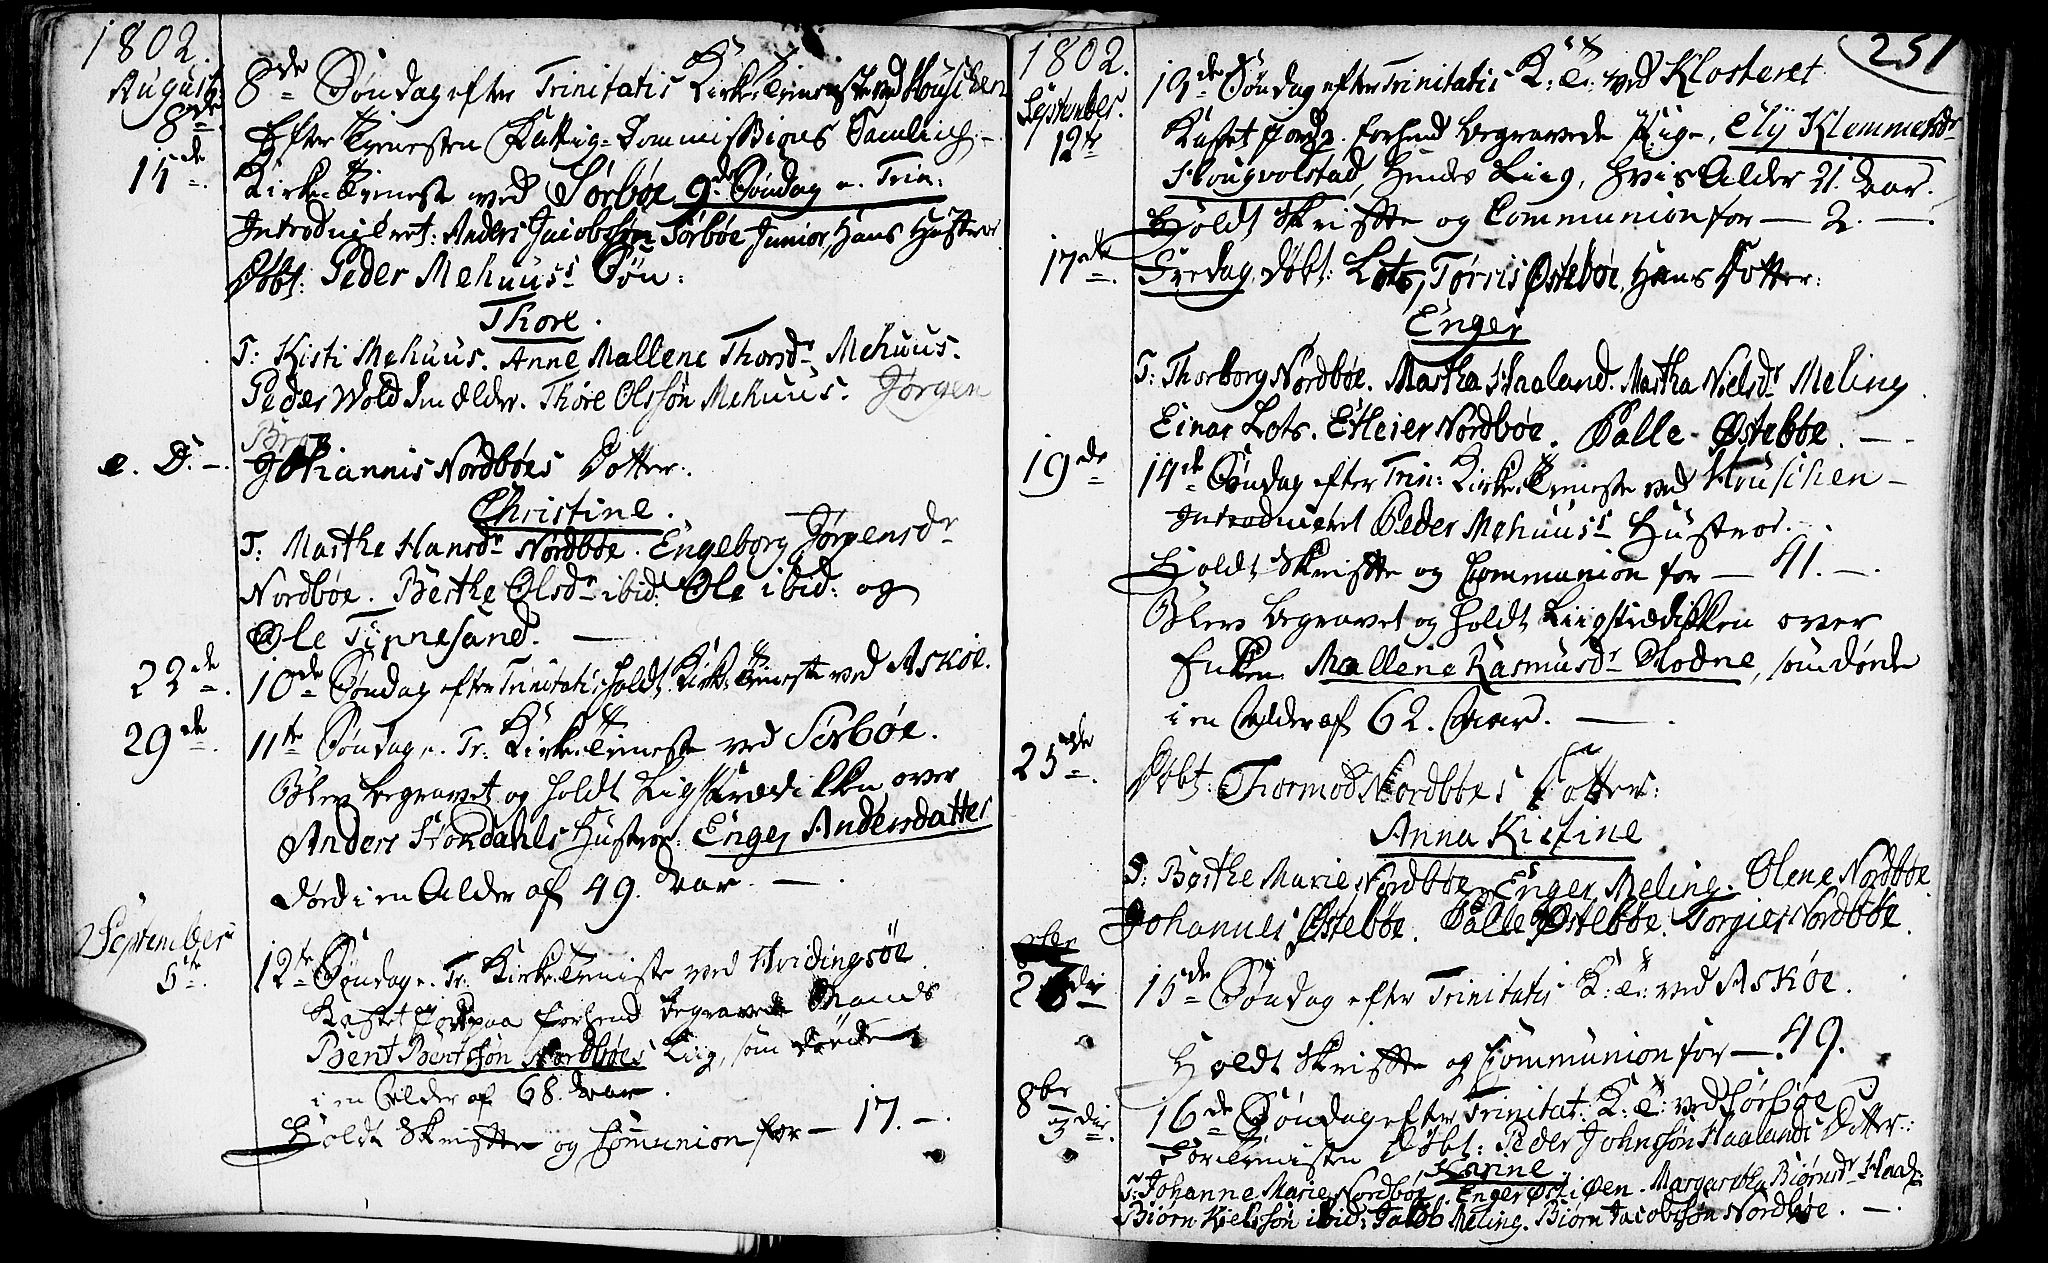 1802.
August:
8de 8de Søndag efter Trinitatis Kirke-Tieneste ved Houschen
Efter Tienesten Fattig-Commissions Samling. –
15de. Kirke-Tieneste ved Sørbøe 9de Søndag e. Trin:
Introduceret: Anders Jacobssøn Sørbøe Junior, Hans Hustroe
Døbt: Peder Mehuus's Søn:
Thore.
T: Kisti Mehuus. Anne Mallene Thorsdr Mehuus.
Peder Wold den Ældr. Thore Olssøn Mehuus. Jørgen
e. D. – Johannis Nordbøes Dotter:
Christine.
T: Marthe Hansdr Nordbøe. Engeborg Jørgensdr
Nordbøe. Berthe Olsdr ibid: Ole ibid: og
Ole Tinnesand. –
22de. 10de Søndag efter Trinitatis holdt Kirke Tieneste ved Askøe.
29de. 11te Søndag e. Tr. Kirke-Tieneste ved Sørbøe.
Blev begravet og holdt Ligprædikken over
Anders Hondahls Hustroe: Enger Andersdatter
død i en Alder af 49. Aar. –
September
5te. 12te Søndag e. Tr. Kirke-Tieneste ved Hvidingsøe
Kastet Jord paa forhend begravede Mands
Bent Bentssøn Nordbøes Liig, som døde
i en Alder af 68 Aar.
Holdt Skrifte og Comunion for – 17. –
251
1802.
September.
12te 13de Søndag efter Trinitatis K: T: ved Klosteret
Kastet Jord p. forhend begravede Pige, Elij Klemmetsdr
Hougvolstad, Hendes Liig, hvis Alder 21. Aar.
Holdt Skrifte og Communion for – 2. –
17de. Fredag, døbt: Lots, Tørris Østebøe, Hans Dotter:
Enger
T: Thorborg Nordbøe. Martha Haaland. Martha Nielsdr Meling
Einar Lots. Etleier Nordbøe. Palle Østebøe. –
19de 14de Søndag efter Trin: Kirke-Tieneste ved Houschen –
Introduceret Peder Mehuus's Hustroe. –
Holdt Skrifte og Communion for – 41. –
Blev begravet og holdt Liigprædikken over
Enken Mallene Rasmusdr Hodne, som døde
i en Alder af 62. Aar. –
25de. Døbt: Thormod Nordbøes Dotter:
Anna Kistine
T: Berthe Marie Nordbøe. Enger Meling. Olene Nordbøe
Johannes Østebøe. Palle Østebøe. Torgier Nordbøe.
26de 15de Søndag efter Trinitatis K: T: ved Askøe.
Holdt Skrifte og Communion for – 49.
8br
3die. 16de Søndag efter Trinitat. K: T: ved Sørbøe
Før Tienisten Døbt: Peder Johnssøn Haalands Dotter:
Karine.
T: Johanne Marie Nordbøe. Enger Øst i Øen. Margaretha Biørnsdr Haal:
Biørn Kielssøn ibid: Jacob Meling. Biørn Jacobssøn Nordbøe. –